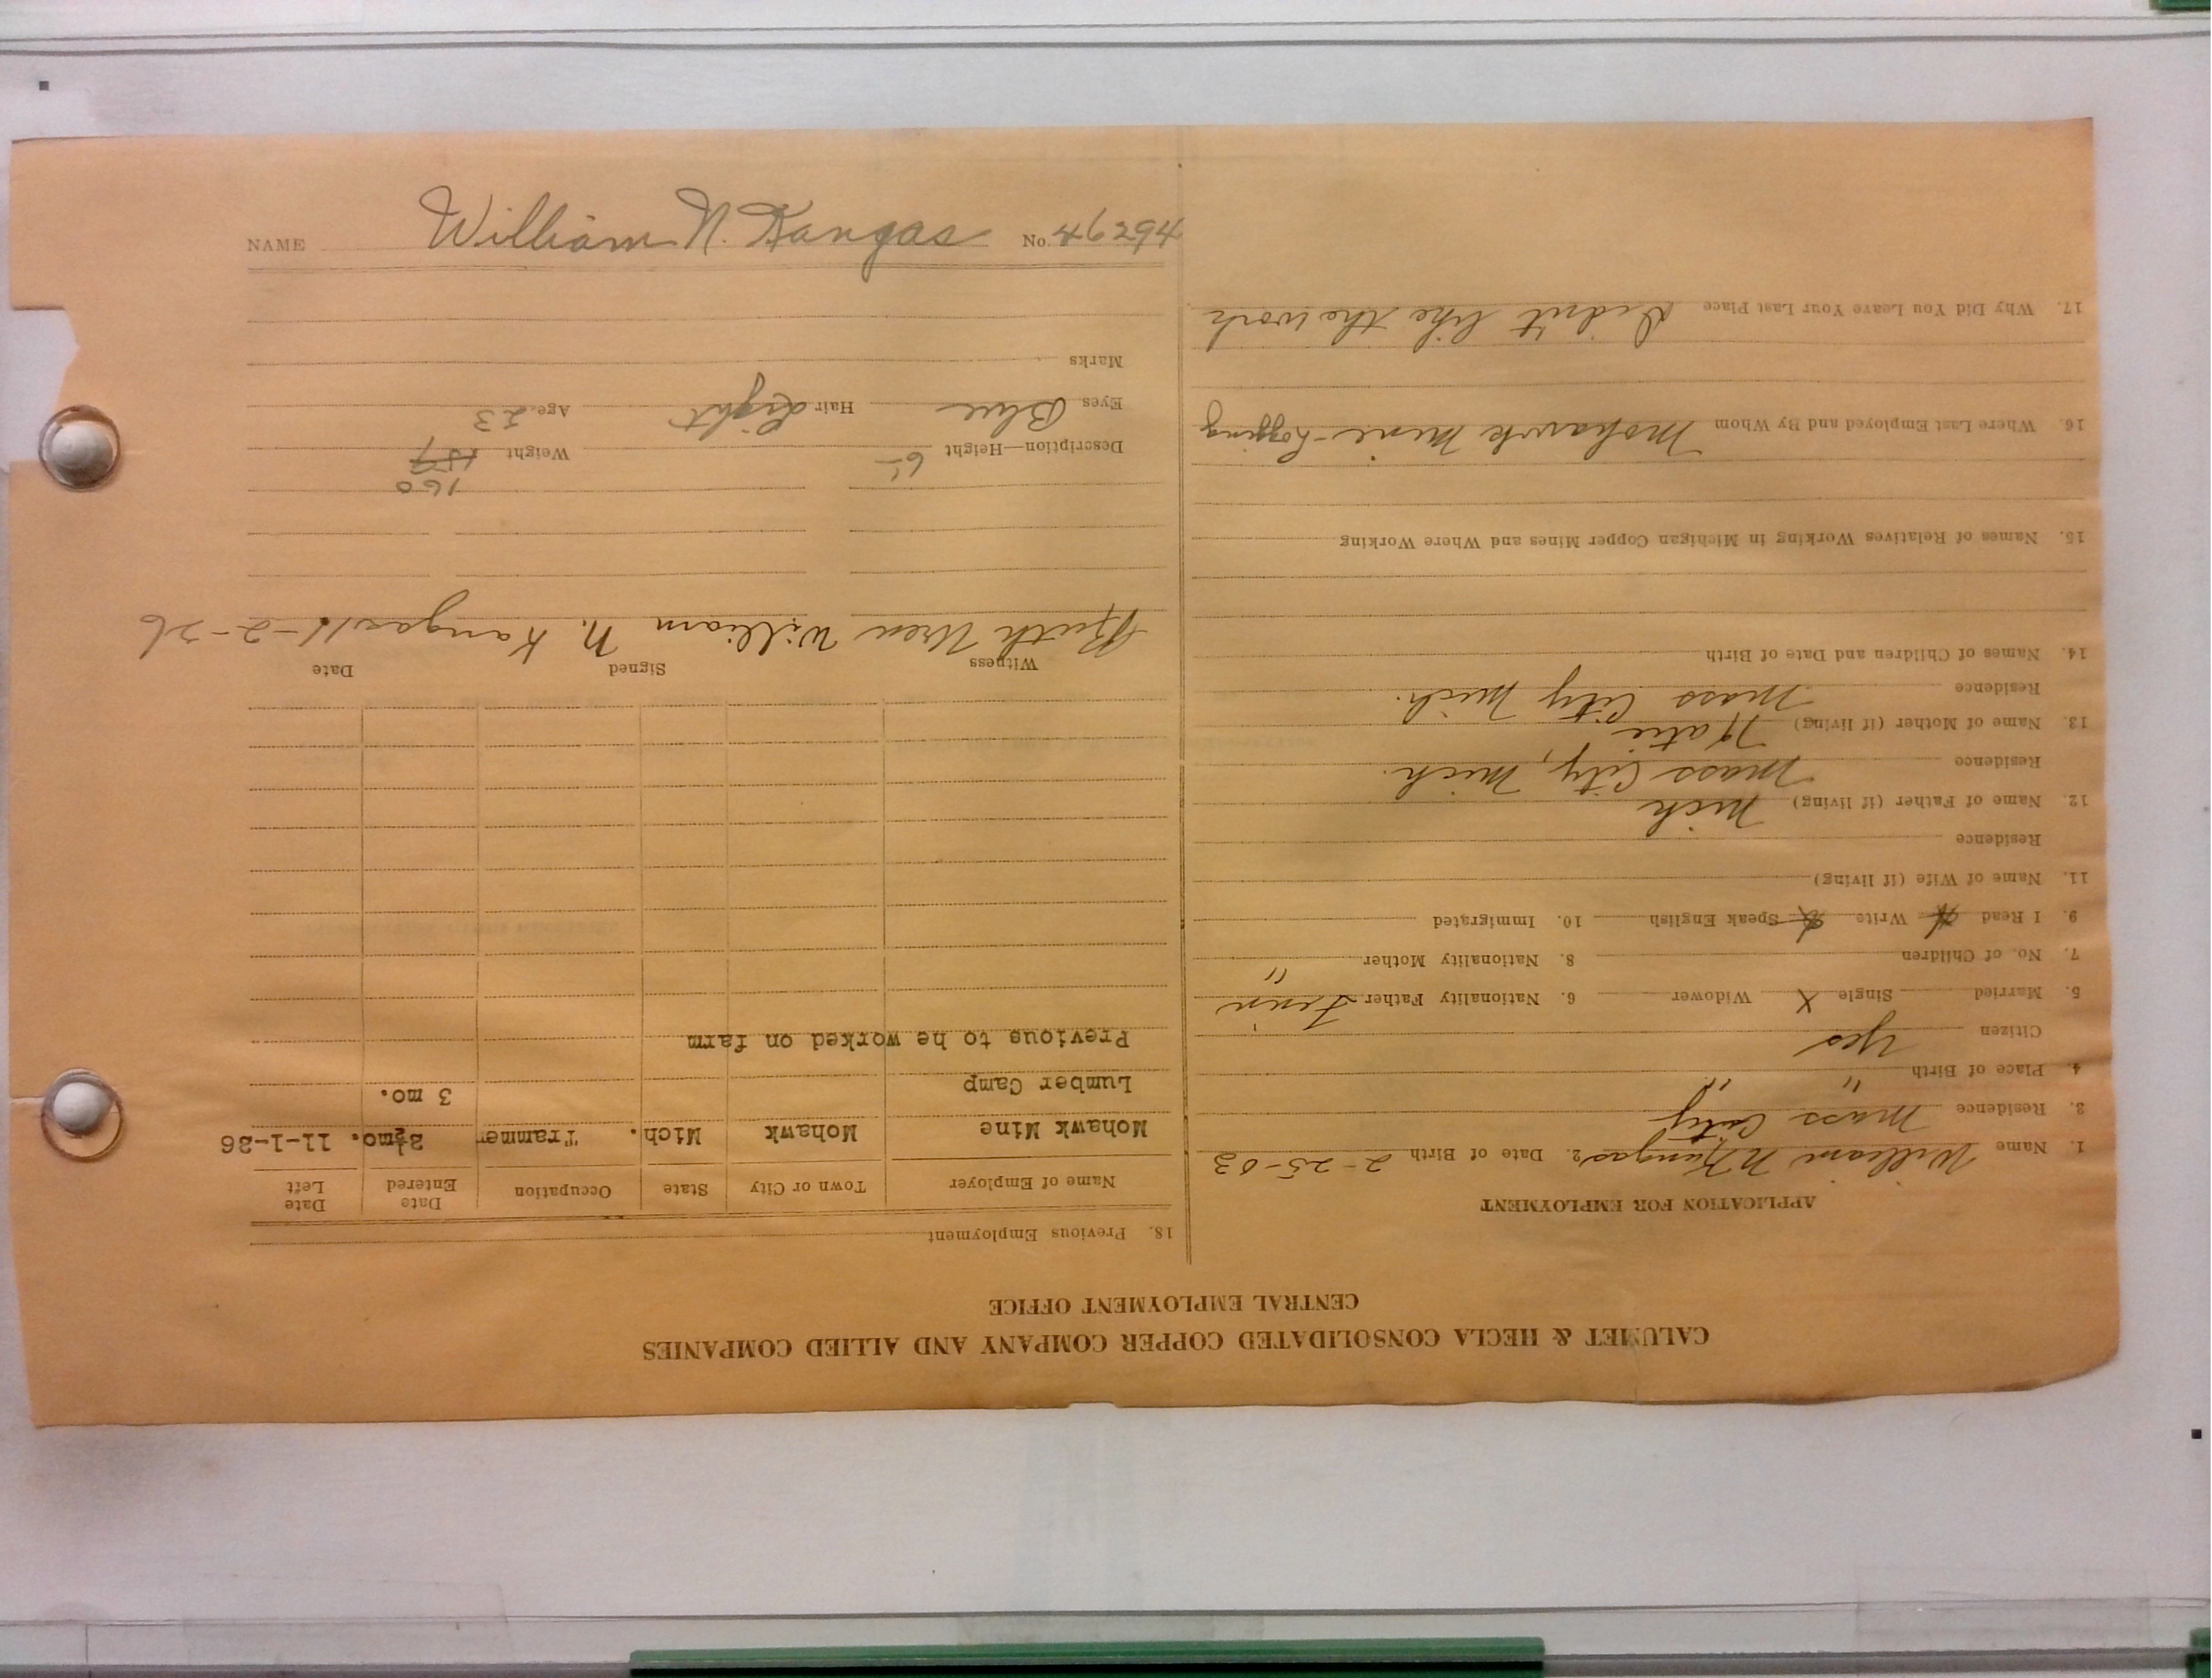 NAME William N. Kangas No. 46294
CALUMET & HECLA CONSOLIDATED COPPER COMPANY AND ALLIED COMPANIES
CENTRAL EMPLOYMENT OFFICE
APPLICATION FOR EMPLOYMENT
1. Name William N Kangas 2. Date of Birth 2-25-03
3. Residence Mass City
4. Place of Birth " "
Citizen Yes
5. Married Single X Widower 6. Nationality Father Finn
7. No. of Children 8. Nationality Mother "
9. I Read X Write X Speak English 10. Immigrated
11. Name of Wife (if living)
Residence
12. Name of Father (if living) Nick
Residence Mass City, Mich.
13. Name of Mother (if living) Katie
Residence Mass City Mich.
14. Names of Children and Date of Birth
15. Names of Relatives Working in Michigan Copper Mines and Where Working
16. Where Last Employed and By Whom Mohawk Mine - Logging
17. Why Did You Leave Your Last Place Didn't like the work
18. Previous Employment
Name of Employer Town or City State Occupation Date Entered Date Left
Mohawk Mine Mohawk Mich. Trammer 2½mo. 11-1-26
Lumber Camp 3 mo.
Previous to he worked on farm
Witness Signed Date
Ruth Uren William N. Kangas 11-2-26
160
Description—Height 6' Weight 157
Eyes Blue Hair Light Age 23
Marks